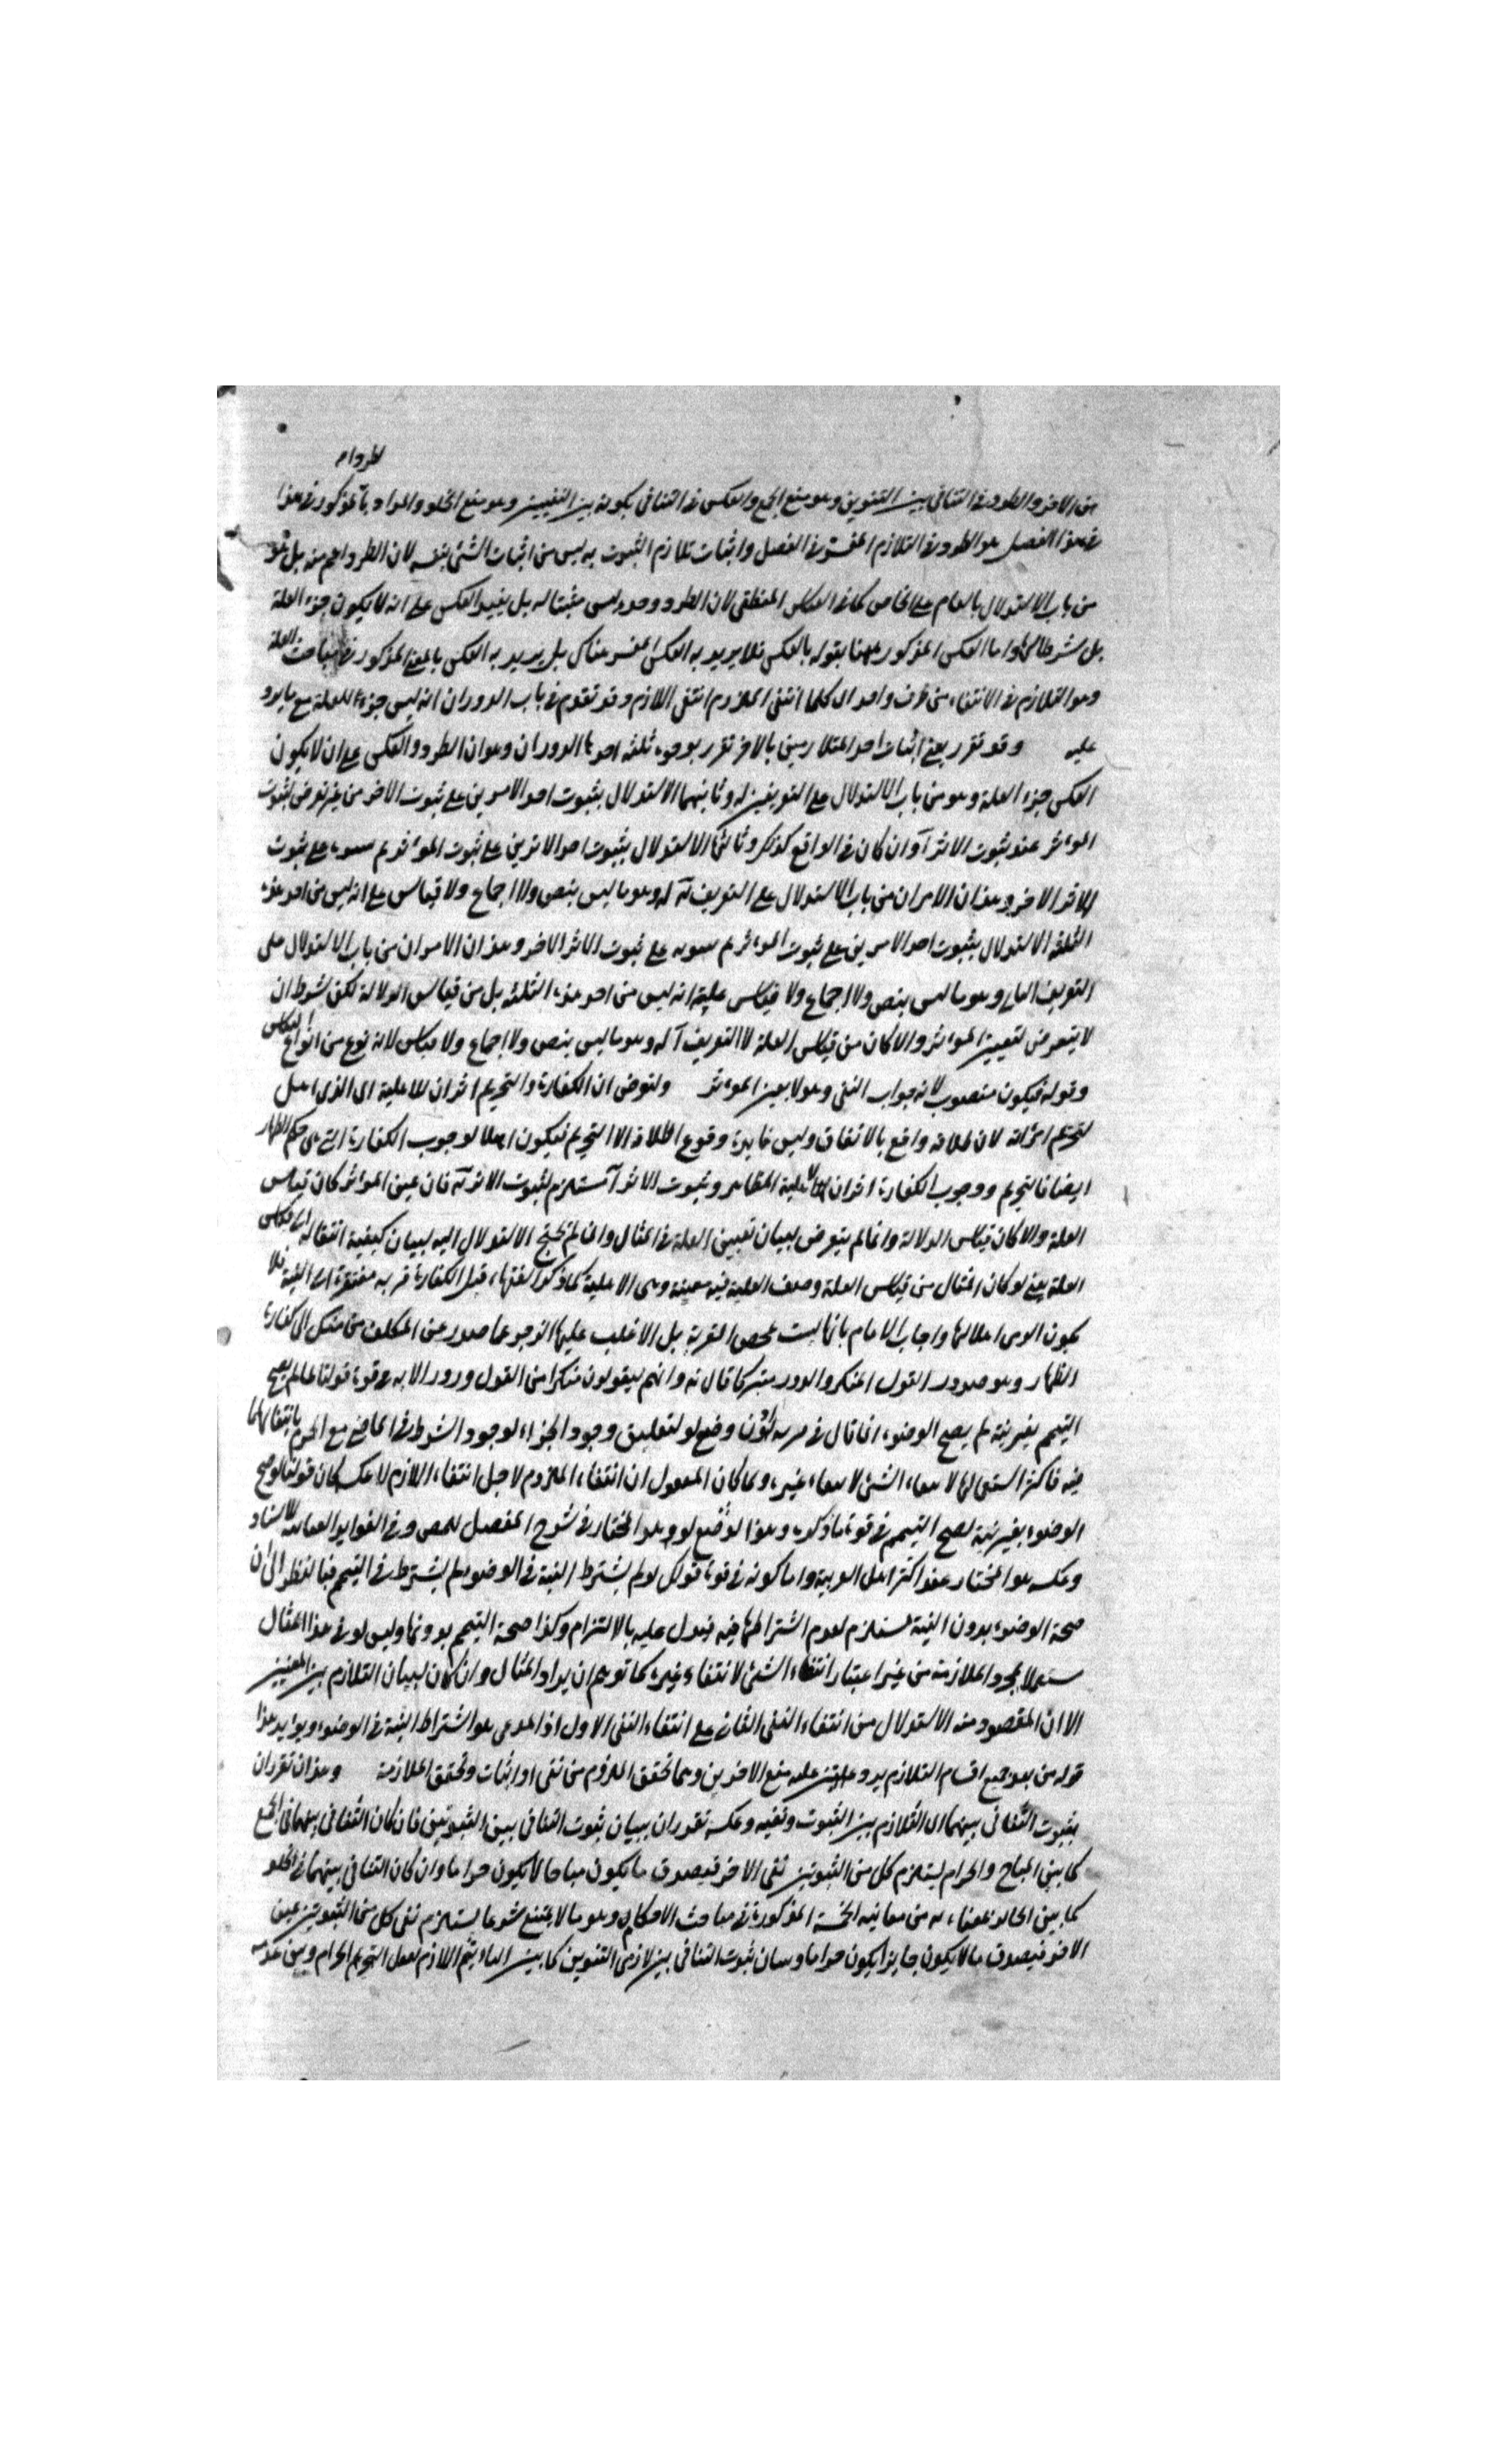 لطردا م
من الاخر والطرد في التنافي بين الثبوتين وهو منع الجمع والعكس في التنافي بكونه بين النفيين وهو منع الخلو والمراد بالمذكور في هذا
في هذا الفصل هو الطرد في التلازم المفسر في الفصل واثبات تلازم الثبوت به ليس من اثبات الشئ بنفسه لان الطرد اعم منه بل هو
من باب الاستدلال بالعام على الخاص كما في العكس المنطقي لان الطرد وحده ليس مثبتا له بل يفيد العكس على انه لا يكون جزء العلة
بل شرطا لها واما العكس المذكور ههنا بقوله بالعكس فلا يريد به العكس المفسر هناك بل يريد به العكس بالمعنى المذكور في مباحث العلة
وهو التلازم في الانتفاء من طرف واحد اى كلما انتفى الملزوم انتفى اللازم وقد تقدم في باب الدوران انه ليس جزء للعلة مع ما يرد
عليه وقد تقرر يعني اثبات احد المتلازمين بالاخر تقرر بوجوه ثلثة احدها الدوران وهو ان الطرد والعكس على ان لا يكون
العكس جزء العلة وهو من باب الاستدلال على التعريفين له وثانيهما الاستدلال بثبوت احد الامرين على ثبوت الاخر من غير تعرض لثبوت
المؤثر عند ثبوت الاثر آ وان كان في الواقع كذلك وثالثها الاستدلال بثبوت احد الاثرين على ثبوت المؤثر ثم على ثبوت
الاثر الاخر وهذان الامران من باب الاستدلال على التعريف آه له وهو ما ليس بنص ولا اجماع ولا قياس على انه ليس من احد هذه
الثلثة الاستدلال بثبوت احد الامرين على ثبوت المؤثر ثم على ثبوت الاثر الاخر وهذان الامران من باب الاستدلال على
التعريف وهو ما ليس بنص ولا اجماع ولا قياس علية انه ليس من احد هذه الثلثة بل من قياس الدلالة لكن بشرط ان
لا يتعرض لتعيين المؤثر والا كان من قياس العلة لا التعريف آ له وهو ما ليس بنص ولا اجماع ولا قياس لانه نوع من انواع القياس
وقوله فيكون منصوب لانه جواب النفي وهو لا يعين المؤثر ولنفرض ان الكفارة والتحريم اثران للاهلية اى الذي اهل
لتحريم امراته لان طلاقه واقع بالاتفاق وليس فايدة وقوع الطلاق الا التحريم فيكون اهلا لوجوب الكفارة التي هي حكم الظهار
ايضا فالتحريم ووجوب الكفارة اثران لاهلية المظاهر وثبوت الاثر آ مستلزم لثبوت الاثر آه فان عين المؤثر كان قياس
العلة والا كان قياس الدلالة وانما لم يتعرض لبيان تعيين العلة في المثال وان لم يحتج الاستدلال اليه لبيان كيفية انتقاله الى قياس
العلة يعني لو كان المثال من قياس العلة وصف العلية فيه معينة وهي الاهلية كما ذكر الفقهاء قيل الكفارة قربة مفتقرة الى النية فلا
يكون الذمي اهلا لها واجاب الامام بانها ليست لمحض القربة بل الاغلب عليها الزجر عما صدر عن المكلف من منكر الى كفارة
الظهار وهو صدور القول المنكر والزور منه كما قال ته وانهم ليقولون منكرا من القول وزورا لانه في قوة قولنا لما لم يصح
التيمم بغير نية لم يصح الوضوء انما قال في لان وضع لو لتعليق وجود الجزاء لوجود الشرط في الماضي مع الجزم بانتفائهما
فيه فاكثر استعمالها لانتفاء الشئ لانتفاء غيره ولما كان المعقول ان انتفاء الملزوم لاجل انتفاء اللازم لا عكسه كان قولنا لو صح
الوضوء بغير نية لصح التيمم في قوة ما ذكره وهذا لوضع لو وهو المختار في شرح المفصل للمص وفي الفوايد
وعكسه هو المختار عند اكثر اهل العربية واما كونه في قوة قولك لو لم يشترط النية في الوضوء لم يشترط في التيمم فبالنظر الى ان
صحة الوضوء بدون النية مستلزم لعدم اشتراطها فيه فيدل عليه بالالتزام وكذا صحة التيمم بدونها وليس لو في هذا المثال
مستعملا لمجرد الملازمة من غير اعتبار انتفاء الشئ لانتفاء غيره كما توهم ان يراد المثال وان كان لبيان التلازم بين المعنيين
الا ان المقصود منه الاستدلال من انتفاء النفي الثاني على انتفاء النفي الاول اذ المدعى هو اشتراط النية في الوضوء ويؤيد هذا
قوله من بعد جميع اقسام التلازم يرد عليه منع الامرين وهما تحقق الملزوم من نفي او اثبات وتحقق الملازمة وهذان تقرران
بثبوت التنافي بينهما اى التلازم بين الثبوت ونفيه وعكسه تقرران ببيان ثبوت التنافي بين الثبوتين فان كان التنافي بينهما في الجمع
كما بين المباح والحرام يستلزم كل من الثبوتين نفي الاخر فيصدق ما يكون مباحا لا يكون حراما وان كان التنافي بينهما في الخلو
كما بين من معانيه الخمسة المذكورة في مباحث الاحكام وهو ما لا يمتنع شرعا يستلزم نفي كل من الثبوتين عين
الاخر فيصدق ما لا يكون جايزا يكون حراما وبيان ثبوت التنافي بين لازمى الثبوتين كما بين اللازم لفعل التحريم الحرام وبين